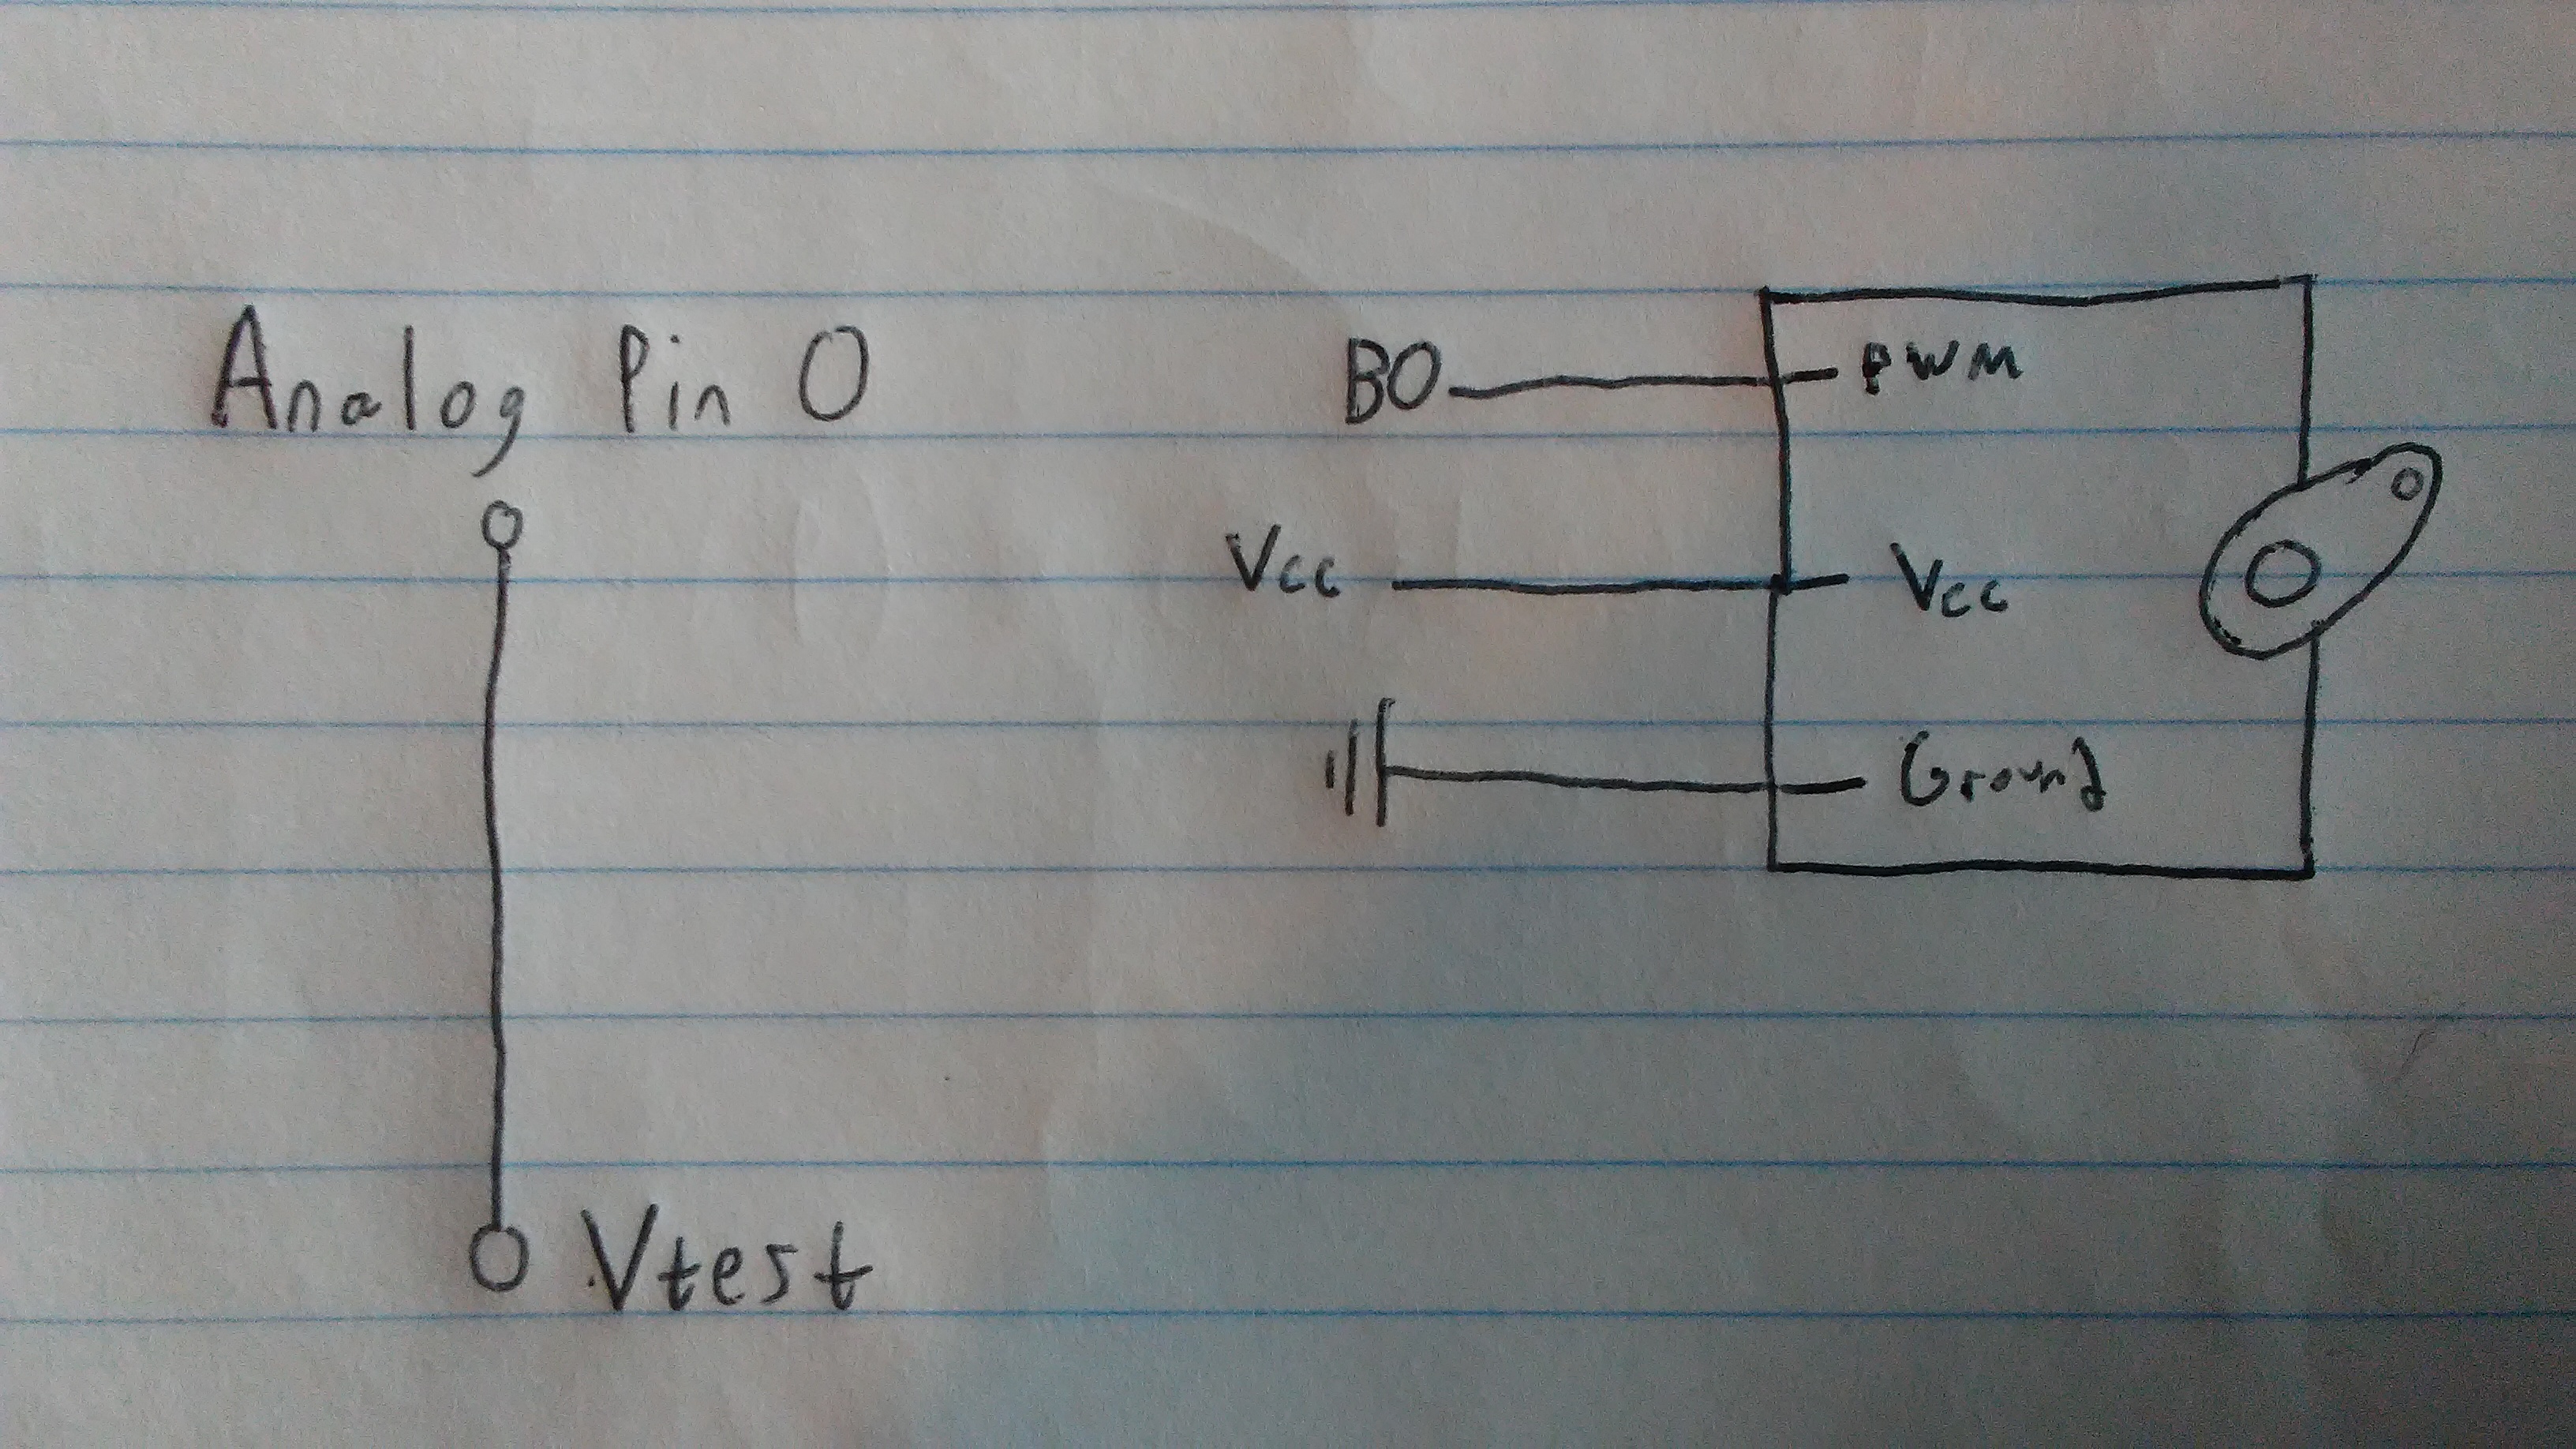 Analog Pin 0
Vtest
B0
PWM
Vcc
Vcc
Ground